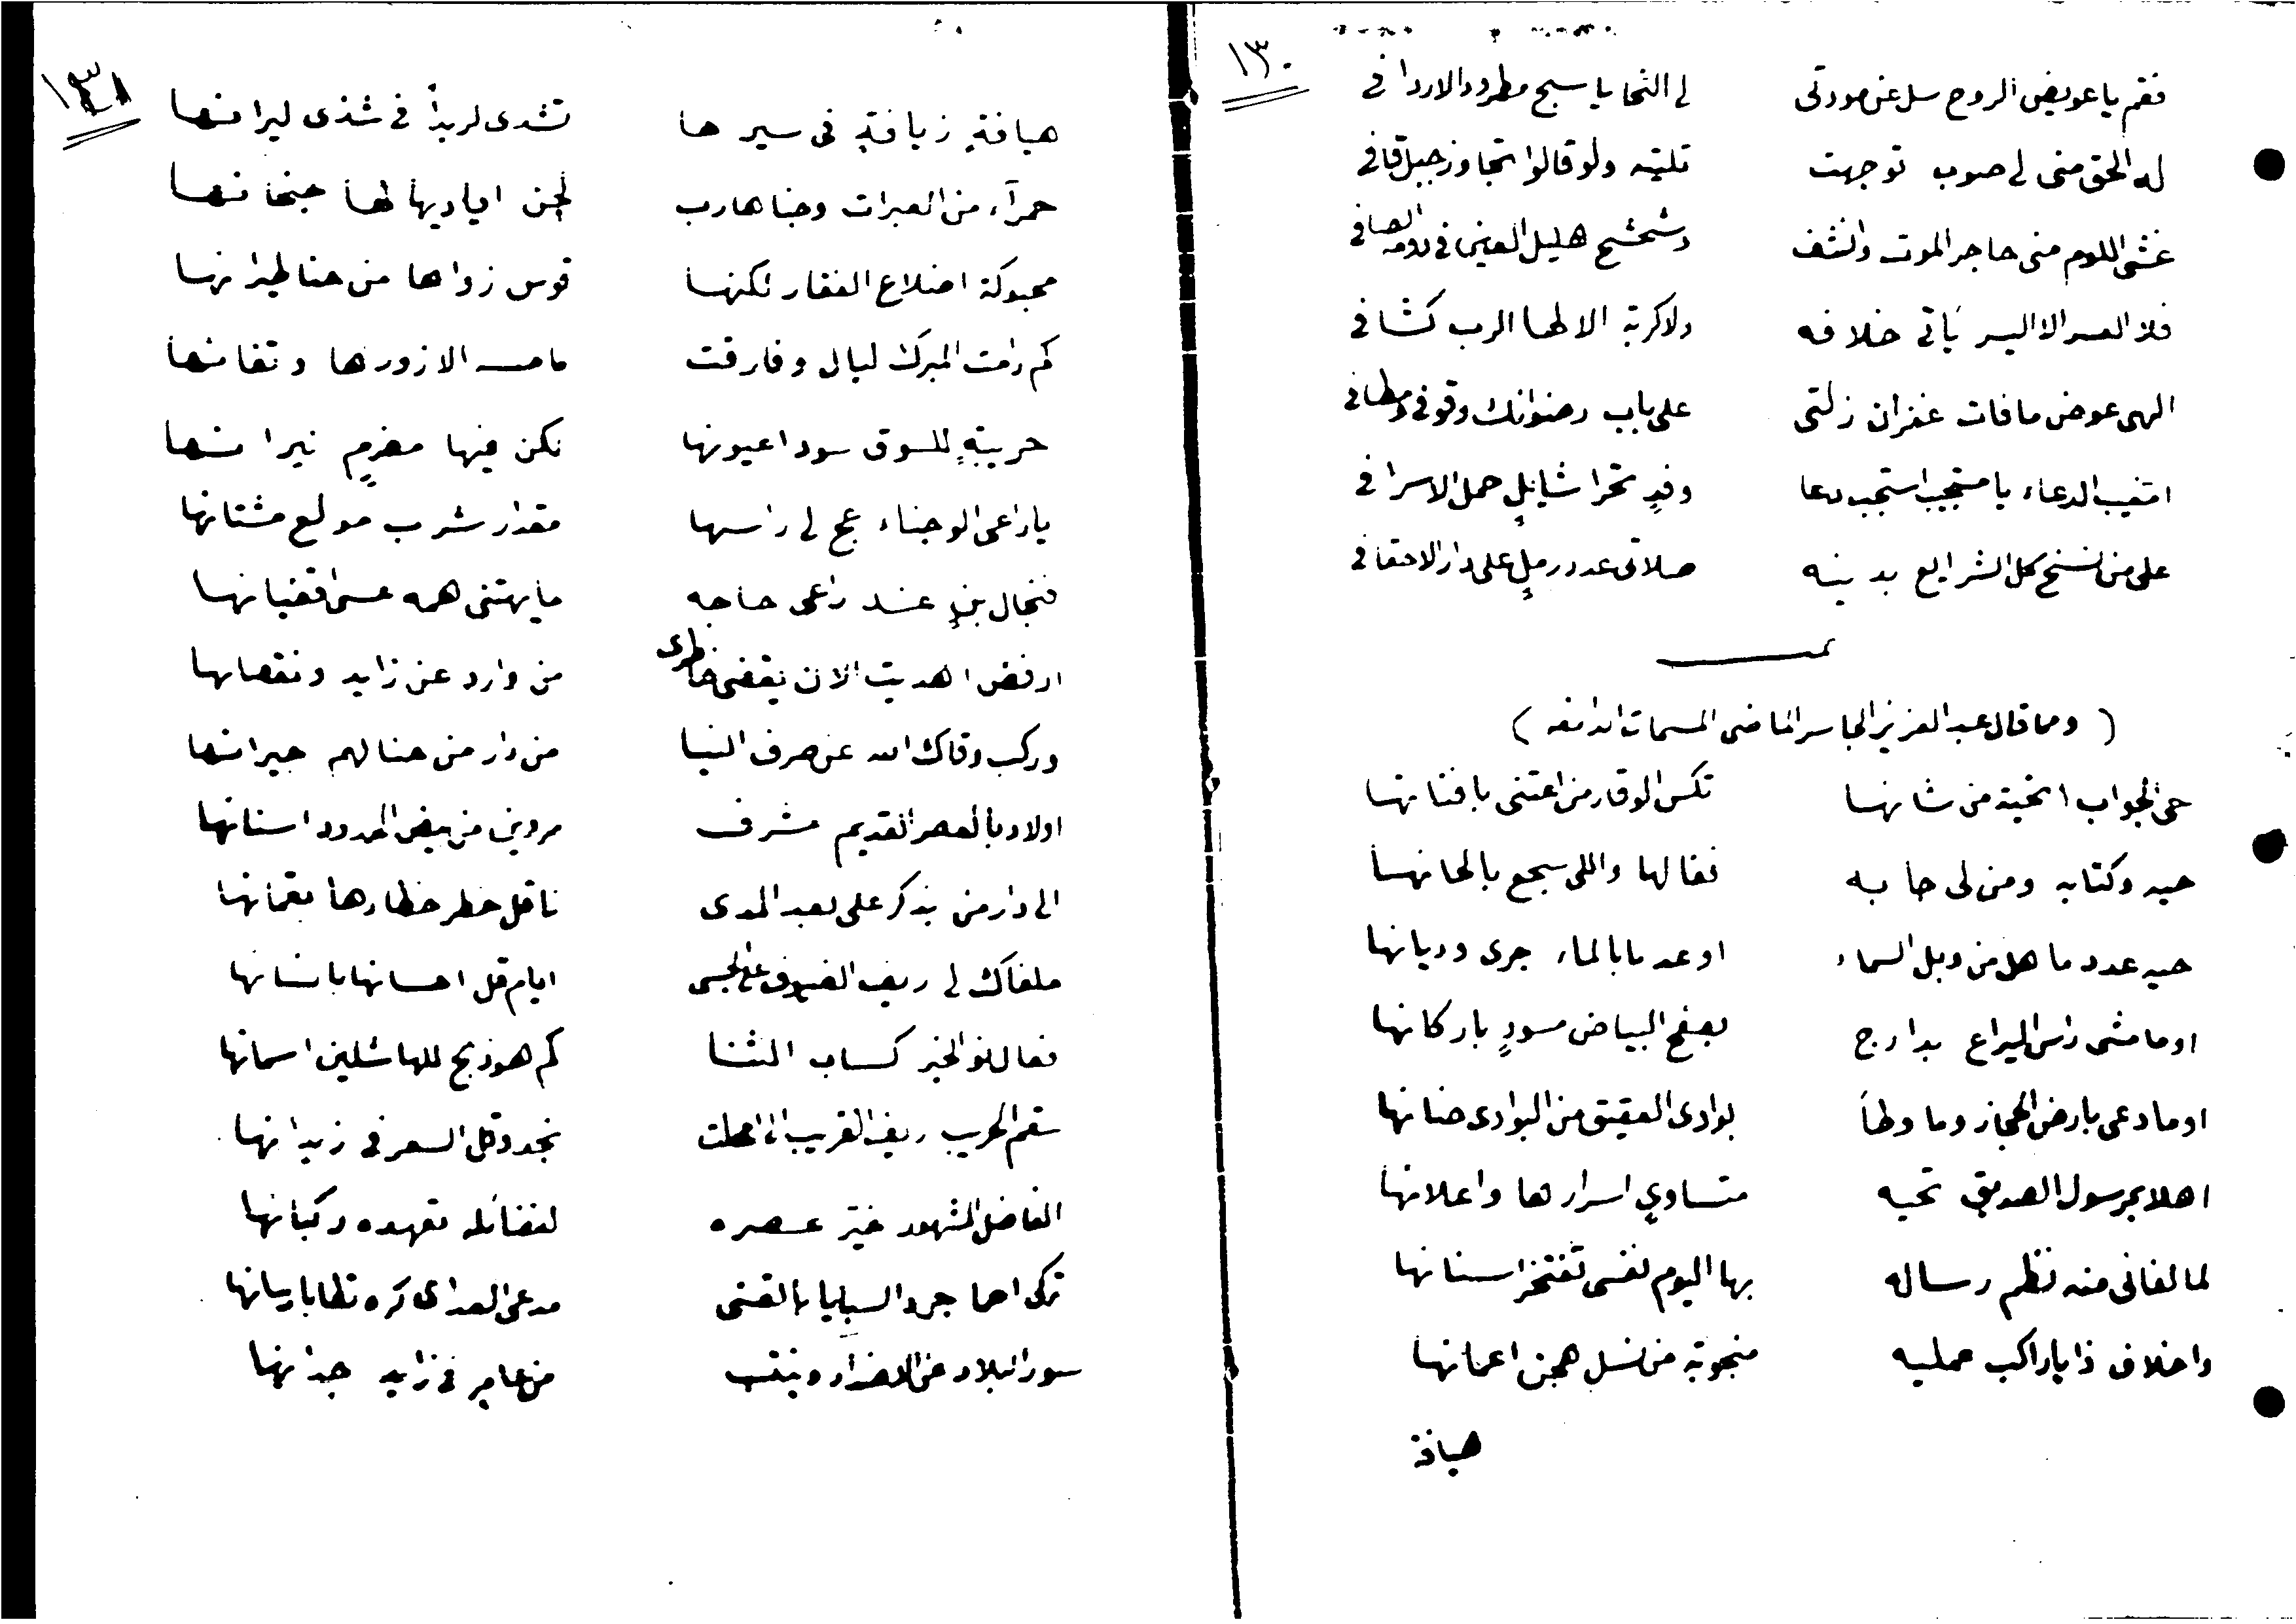 ١٣٠
فقم يا عويض الروح سل عن مودتى لى الثجا يا سبج مطرود الاردافى
له الحق منى لى صوب توجهت تليته ولو قالوا تجاوز جبل قافى
غشى اللوم منى حاجر الموت والشف هليل العين فى الصافى
فلا العسر الا اليسر ياتى خلافه ولا كربة الا لها الرب كشافى
الهى عوض ما فات غفران زلتى على باب رضوانك وقوفى
الدعاء يا مستجيب استجب دعا حمل الاسرافى
على من نسخ كل الشرايع بدينه صلاتى عدد رملٍ على دار الاحقافى
( ومما قال عبد العزيز الجاسر الماضى المسمات الدامغه )
حى الجواب من شانها تكس الوقار من اعتنى بافنانها
حيه وكتابه ومن لى جا به نفالها واللى سجع بالحانها
حيه عدد ما هل من وبل السماء او عد ما بالماء جرى وديانها
او ما مشى راس اليراع بدارج بصفح البياض مسودٍ باركانها
او ما دعى بارض الحجاز وما وطا بوادى العقيق من البوادى ضانها
اهلا برسول الصديق تحيه متساوىٍ اسرارها واعلانها
لما لفانى منه نظم رساله بها اليوم نفسى تفتخر اسنانها
واخلاف ذا يا راكب عمليه منجوبة من نسل هجن اعمانها
هيافة
١٣١
هيافةٍ زيافةٍ فى سيرها تشدى لربداً فى شذى ليرانها
حمرآء من العبرات وجناهارب لجن اياديها لها جنحانها
محبوكة اضلاع الفقار لكنها قوس زواها من حنا طيرانها
كم رامت المبرك ليال وفارقت ما مسه الا زورها وثفانها
حريبةٍ للسوق سود اعيونها نكن فيها مضرمٍ نيرانها
يا راعى الوجناء عج لى راسها مقدار شرب مولع مشتانها
فنجال بنٍ عند راعى حاجه ما يهتنى همه عسى اقضيانها
ارفض اهديت الان يقضى خاطرى من وارد عن زايد ونقصانها
وركب وقاك الله عن صرف النيا من دار من حنا لهم جيرانها
اولاد بالعصر القديم مشرف مروين من بيض الحدود اسنانها
الى دار من يذكر على بعد المدى ناقل خطر خطارها بقمانها
ملفاك لى ريف الضيوف ايام قل احسانها بانسانها
الخير كساب الثنا كم هو ذبح للهاشلين اسمانها
سقم الحريب ريف القريب الى امحلت نجد وقل السعر فى زيدانها
الفاضل المشهور خيّر عصره لفضائله تعهده ركبانها
تركى احما جرد السبايا بالقنى مدعى العداى كره تطا باريانها
سور البلاد عن الاضداد وينتب من عامرٍ فى زايد جدانها